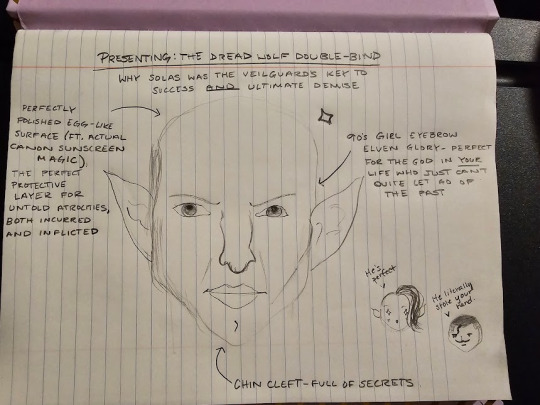 PRESENTING: THE DREAD WOLF DOUBLE-BIND
WHY SOLAS WAS THE VEILGUARD'S KEY TO
SUCCESS AND ULTIMATE DEMISE
PERFECTLY
POLISHED EGG-LIKE
SURFACE (FT. ACTUAL
CANON SUNSCREEN
MAGIC),
THE PERFECT
PROTECTIVE
LAYER FOR
UNTOLD ATROCITIES,
BOTH INCURRED
AND INFLICTED
90'S GIRL EYEBROW
ELVEN GLORY - PERFECT
FOR THE GOD IN YOUR
LIFE WHO JUST CAN'T
QUITE LET GO OF
THE PAST
He's
perfect
He literally
stole your
hand.
CHIN CLEFT - FULL OF SECRETS